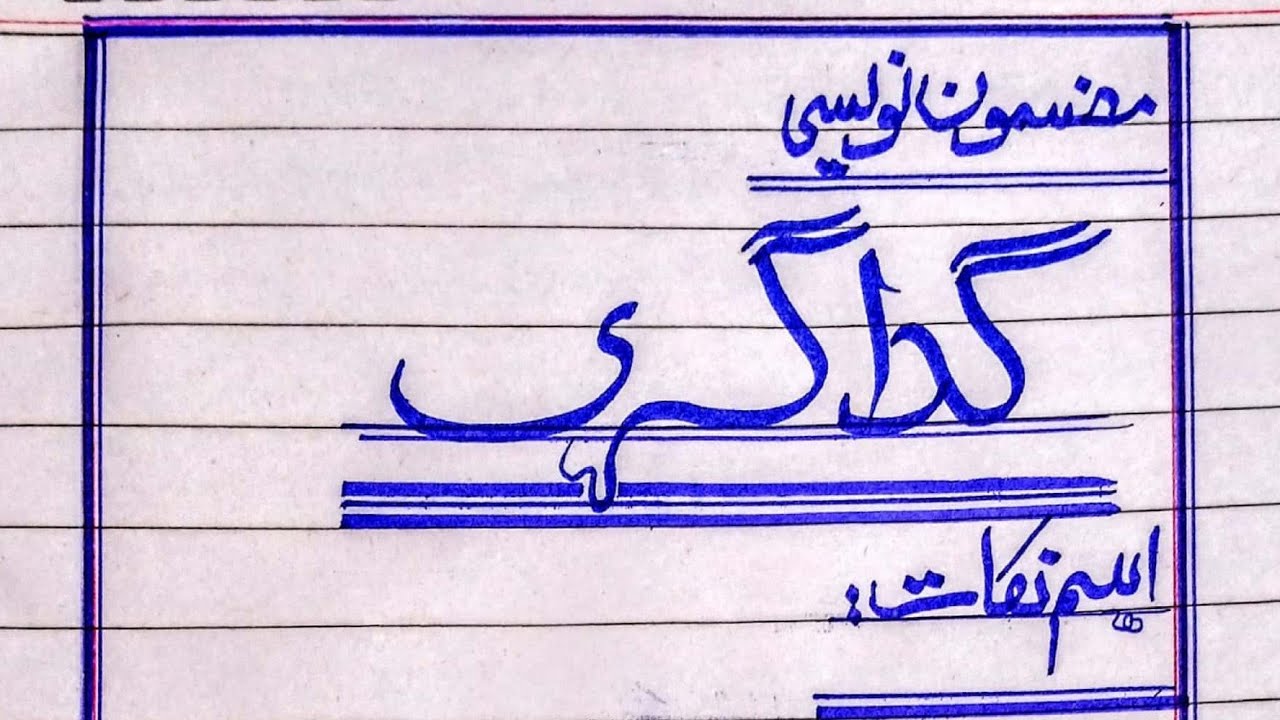 مضمون نویسی
گداگری
اہم نکات: